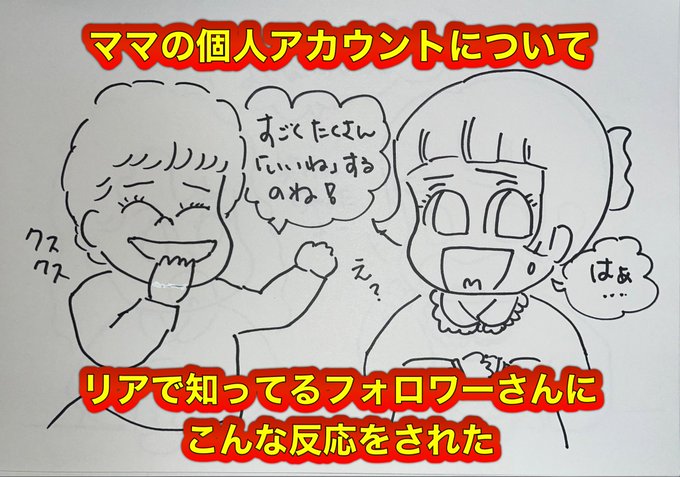 ママの個人アカウントについて
すごくたくさん
「いいね」する
のね!
クス
クス
え?
はぁ
....
リアで知ってるフォロワーさんに
こんな反応をされた